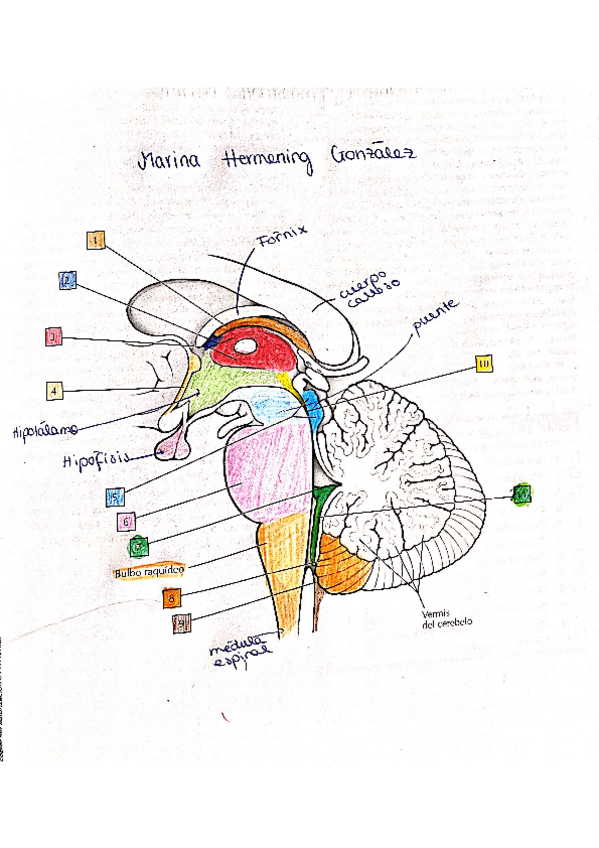 Marina Hermening González
1
Fórnix
2
cuerpo
calloso
puente
3
10
4
Hipotálamo
Hipófisis
5
6
Bulbo raquídeo
8
9
Vermis
del cerebelo
médula
espinal